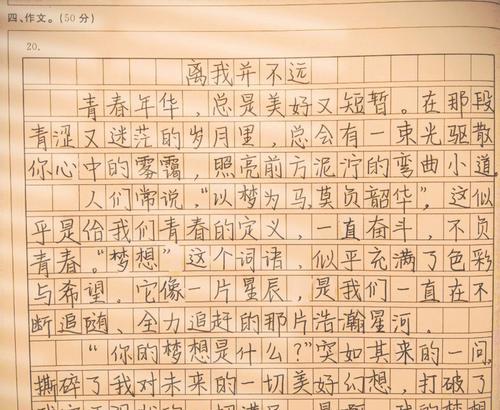 四、作文。(50分)
20.
离我并不远
青春年华，总是美好又短暂。在那段
青涩又迷茫的岁月里，总会有一束光驱散
你心中的雾霭，照亮前方泥泞的弯曲小道。
人们常说，“以梦为马，莫负韶华”，这似
乎是给我们青春的定义，一直奋斗，不负
青春。“梦想”这个词语，似乎充满了色彩
与希望。它像一片星辰，是我们一直在不
断追随、全力追赶的那片浩瀚星河．
“你的梦想是什么？”突如其来的一问，
撕碎了我对未来的一切美好幻想，打破了